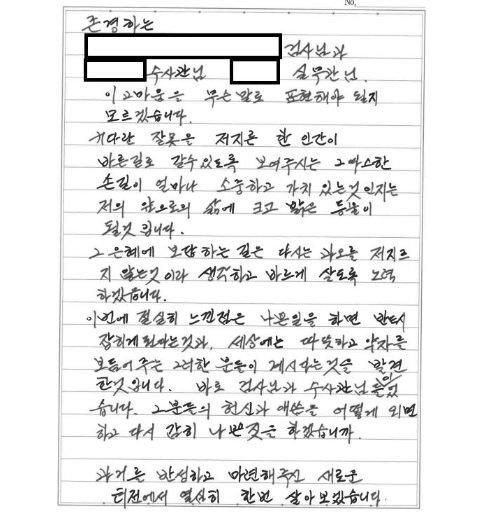 No.
존경하는
검사님과
수사관님 실무관님.
이 고마움은 무슨 말로 표현해야 될지
모르겠습니다.
커다란 잘못을 저지른 한 인간이
바른길로 갈수있도록 보여주시는 그 따스한
손길이 얼마나 소중하고 가치 있는것인지는
저의 앞으로의 삶에 크고 밝은 등불이
될것 입니다.
그 은혜에 보답하는 길은 다시는 과오를 저지르
지 않는것 이라 생각하고 바르게 살도록 노력
하겠습니다.
이번에 절실히 느낀점은 나쁜일을 하면 반드시
잡히게 된다는것과, 세상에는 따뜻하고 약자를
보듬어 주는 그러한 분들이 계시다는것을 발견
한것입니다. 바로 검사님과 수사관님들이었
습니다. 그분들의 헌신과 애씀을 어떻게 외면
하고 다시 감히 나쁜짓을 하겠습니까.
과거를 반성하고 마련해주신 새로운
터전에서 열심히 한번 살아보겠습니다